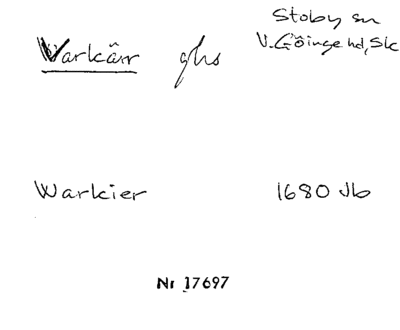 Varkärr ghs
Stoby sn
V. Göinge hd, Sk
Warkier 1680 Jb
Nr 17697